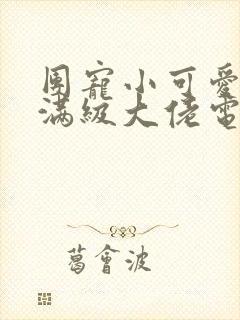 團寵小可愛
滿級大佬電
葛會波